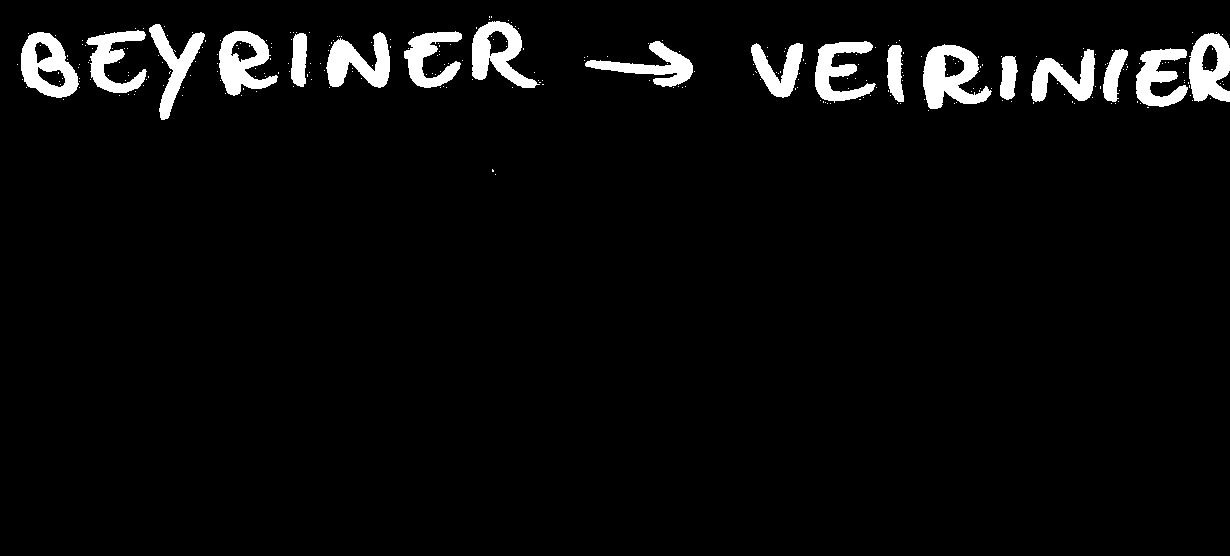 BEYRINER → VEIRINIER